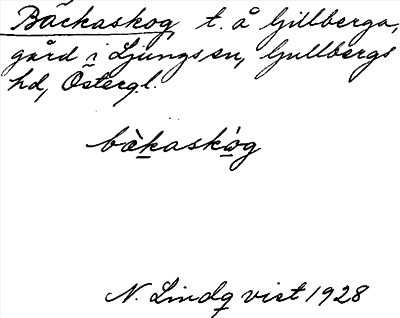 Bäckaskog, t. å Gillberga,
gård i Ljungs sn, Gullbergs
hd, Östergl.
bàkaskóg
N. Lindqvist 1928